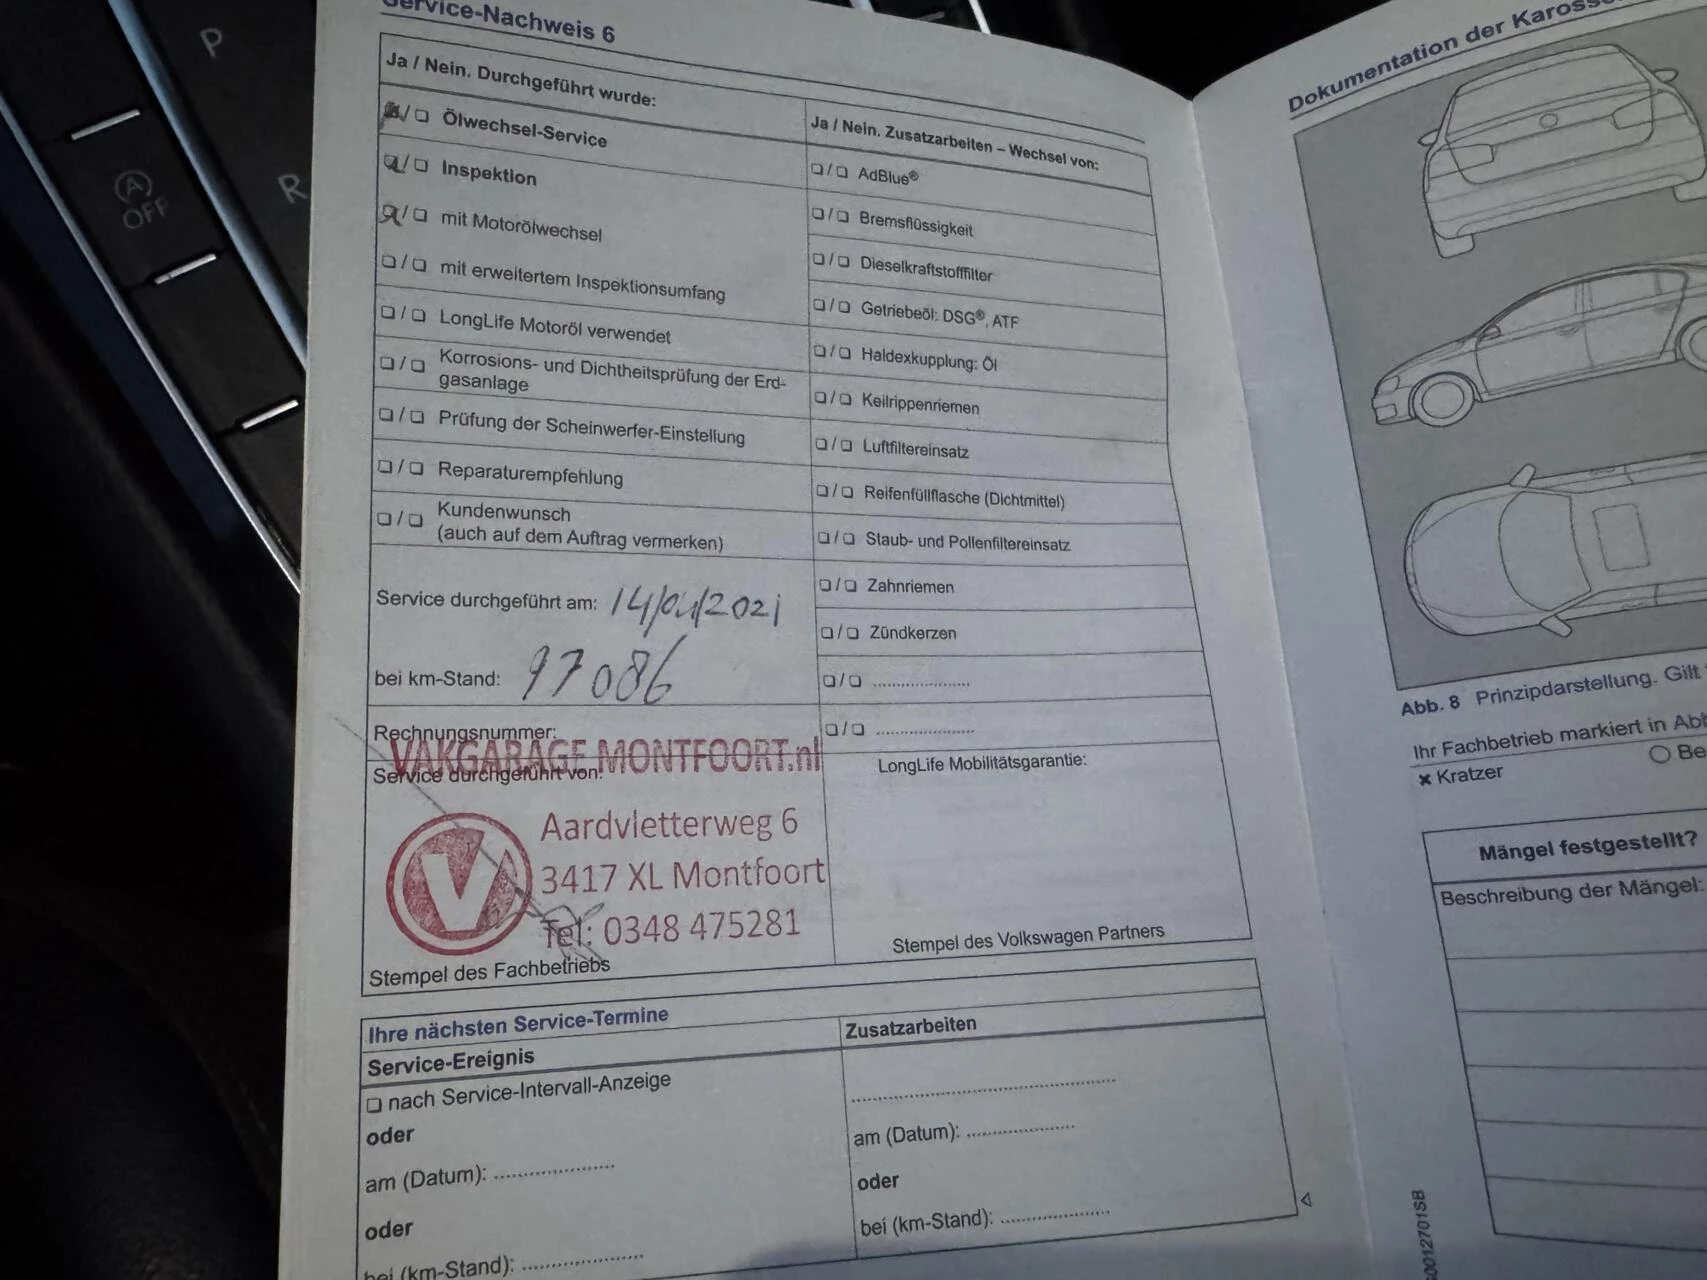 P
R
A
OFF
Service-Nachweis 6
Ja / Nein. Durchgeführt wurde:
❏ / ❏ Ölwechsel-Service
❏ / ❏ Inspektion
❏ / ❏ mit Motorölwechsel
❏ / ❏ mit erweitertem Inspektionsumfang
❏ / ❏ LongLife Motoröl verwendet
❏ / ❏ Korrosions- und Dichtheitsprüfung der Erd-
gasanlage
❏ / ❏ Prüfung der Scheinwerfer-Einstellung
❏ / ❏ Reparaturempfehlung
❏ / ❏ Kundenwunsch
(auch auf dem Auftrag vermerken)
Service durchgeführt am: 14/04/2021
bei km-Stand: 97086
Rechnungsnummer:
VAKGARAGE MONTFOORT.nl
Service durchgeführt von:
V
Aardvletterweg 6
3417 XL Montfoort
Tel: 0348 475281
Stempel des Fachbetriebs
Ja / Nein. Zusatzarbeiten – Wechsel von:
❏ / ❏ AdBlue®
❏ / ❏ Bremsflüssigkeit
❏ / ❏ Dieselkraftstofffilter
❏ / ❏ Getriebeöl: DSG®, ATF
❏ / ❏ Haldexkupplung: Öl
❏ / ❏ Keilrippenriemen
❏ / ❏ Luftfiltereinsatz
❏ / ❏ Reifenfüllflasche (Dichtmittel)
❏ / ❏ Staub- und Pollenfiltereinsatz
❏ / ❏ Zahnriemen
❏ / ❏ Zündkerzen
❏ / ❏ ....................
❏ / ❏ ....................
LongLife Mobilitätsgarantie:
Stempel des Volkswagen Partners
Ihre nächsten Service-Termine
Service-Ereignis
❏ nach Service-Intervall-Anzeige
oder
am (Datum): ....................
oder
bei (km-Stand): ....................
Zusatzarbeiten
....................
am (Datum): ....................
oder
bei (km-Stand): ....................
Dokumentation der Karosse
Abb. 8 Prinzipdarstellung. Gilt
Ihr Fachbetrieb markiert in Abb
✖ Kratzer
Be
Mängel festgestellt?
Beschreibung der Mängel:
012701SB